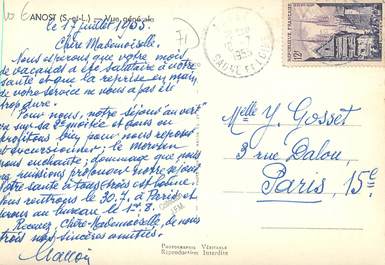 ANOST (S.-et-L.) — Vue générale
le 17 juillet 1955.
Chère Mademoiselle.
Nous espérons que votre mois
de vacances a été salutaire à votre
santé et que la reprise en main
de votre service ne vous a pas été
trop dure.
Pour nous, notre séjour au vert
va sur sa 2e moitié et nous en
profitons bien pour nous reposer
et excursionner; le morvan
nous enchante; dommage que nous
ne puissions prolonger notre séjour
santé à tous trois est bonne.
Nous rentrons le 30.7. à Paris et
au bureau le 1er 8.
Recevez, Chère Mademoiselle, de nous
trois nos sincères amitiés.
71
SAONE ET LOIRE
POSTES
12F
Melle Y. Gosset
3 rue Dalou,
Paris, 15e
PHOTOGRAPHIE VÉRITABLE
Reproduction Interdite